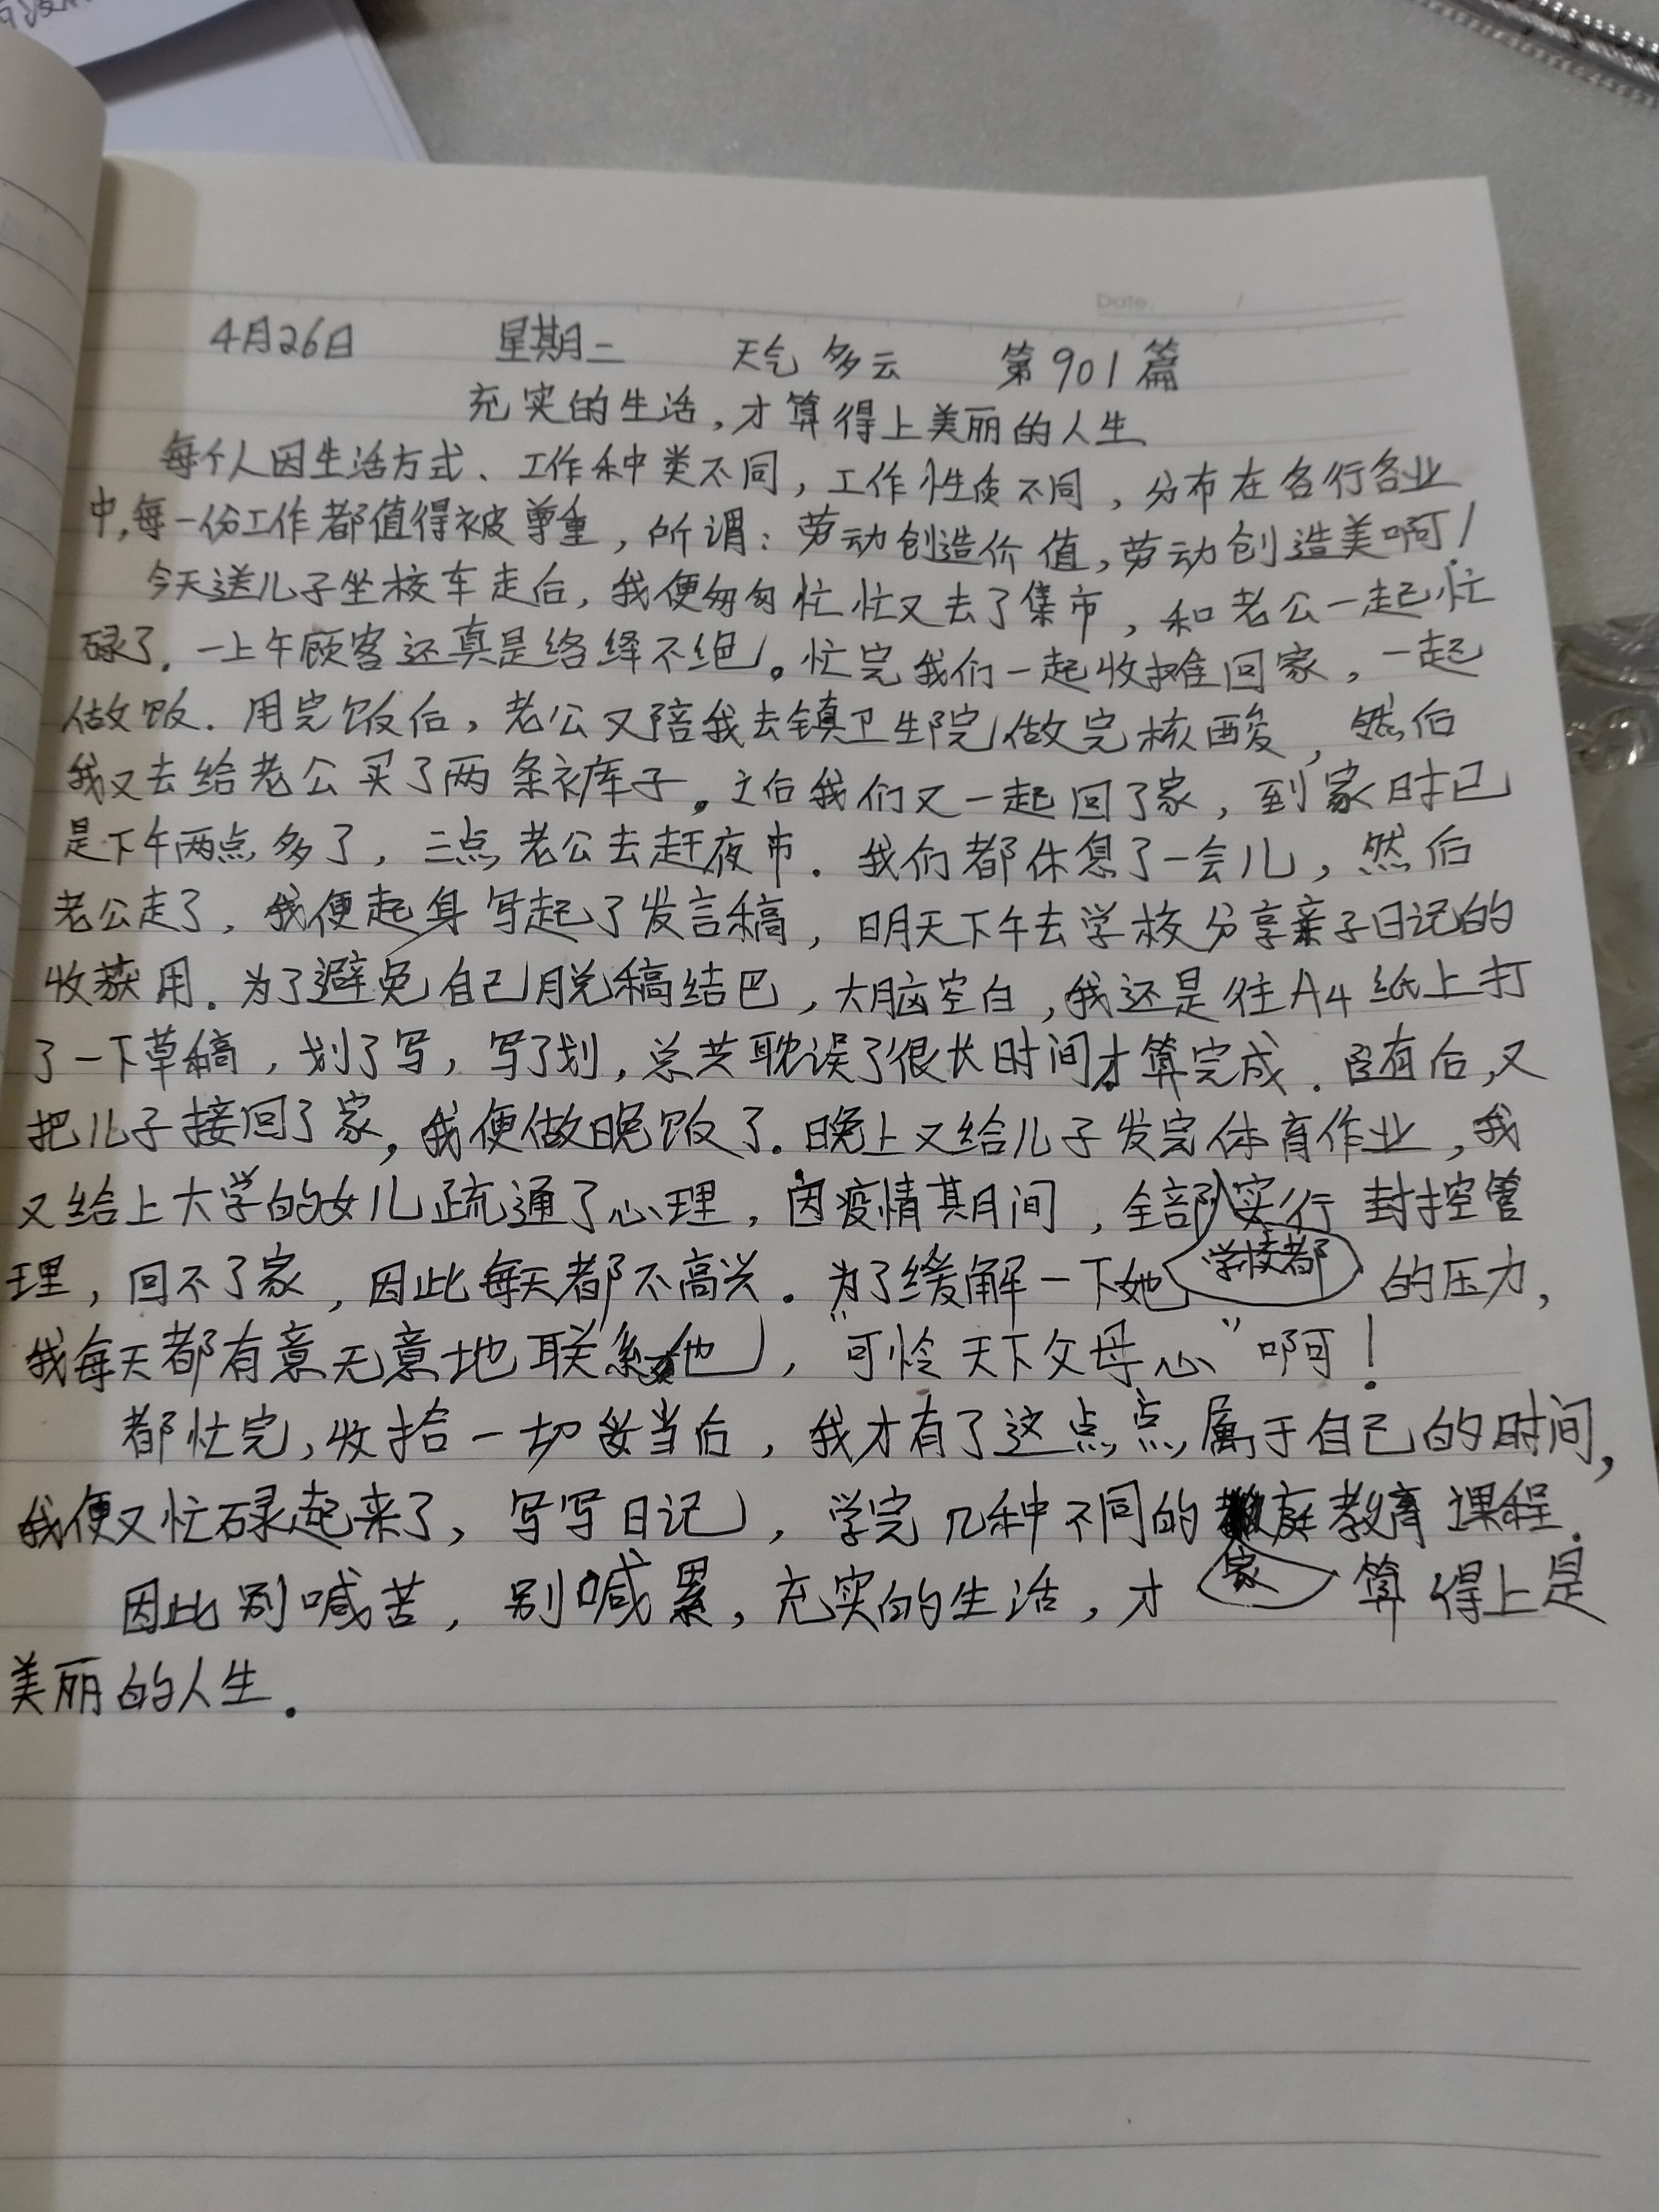 Date. /
4月26日 星期二 天气 多云 第901篇
充实的生活,才算得上美丽的人生
每个人因生活方式、工作种类不同,工作性质不同,分布在各行各业
中,每一份工作都值得被尊重,所谓:劳动创造价值,劳动创造美啊!
今天送儿子坐校车走后,我便匆匆忙忙又去了集市,和老公一起忙
碌了.一上午顾客还真是络绎不绝。忙完我们一起收摊回家,一起
做饭.用完饭后,老公又陪我去镇卫生院做完核酸,然后
我又去给老公买了两条裤子。之后我们又一起回了家,到家时已
是下午两点多了,三点老公去赶夜市.我们都休息了一会儿,然后
老公走了,我便起身写起了发言稿,明天下午去学校分享亲子日记的
收获用.为了避免自己脱稿结巴,大脑空白,我还是往A4纸上打
了一下草稿,划了写,写了划,总共耽误了很长时间才算完成.后,又
把儿子接回了家,我便做晚饭了.晚上又给儿子发完体育作业,我
又给上大学的女儿疏通了心理,因疫情期间,全部实行封控管
学校都
理,回不了家,因此每天都不高兴.为了缓解一下她的压力,
我每天都有意无意地联系她,“可怜天下父母心”啊!
都忙完,收拾一切妥当后,我才有了这点点属于自己的时间,
我便又忙碌起来了,写写日记,学完几种不同的庭教育课程.
家
因此别喊苦,别喊累,充实的生活,才算得上是
美丽的人生.